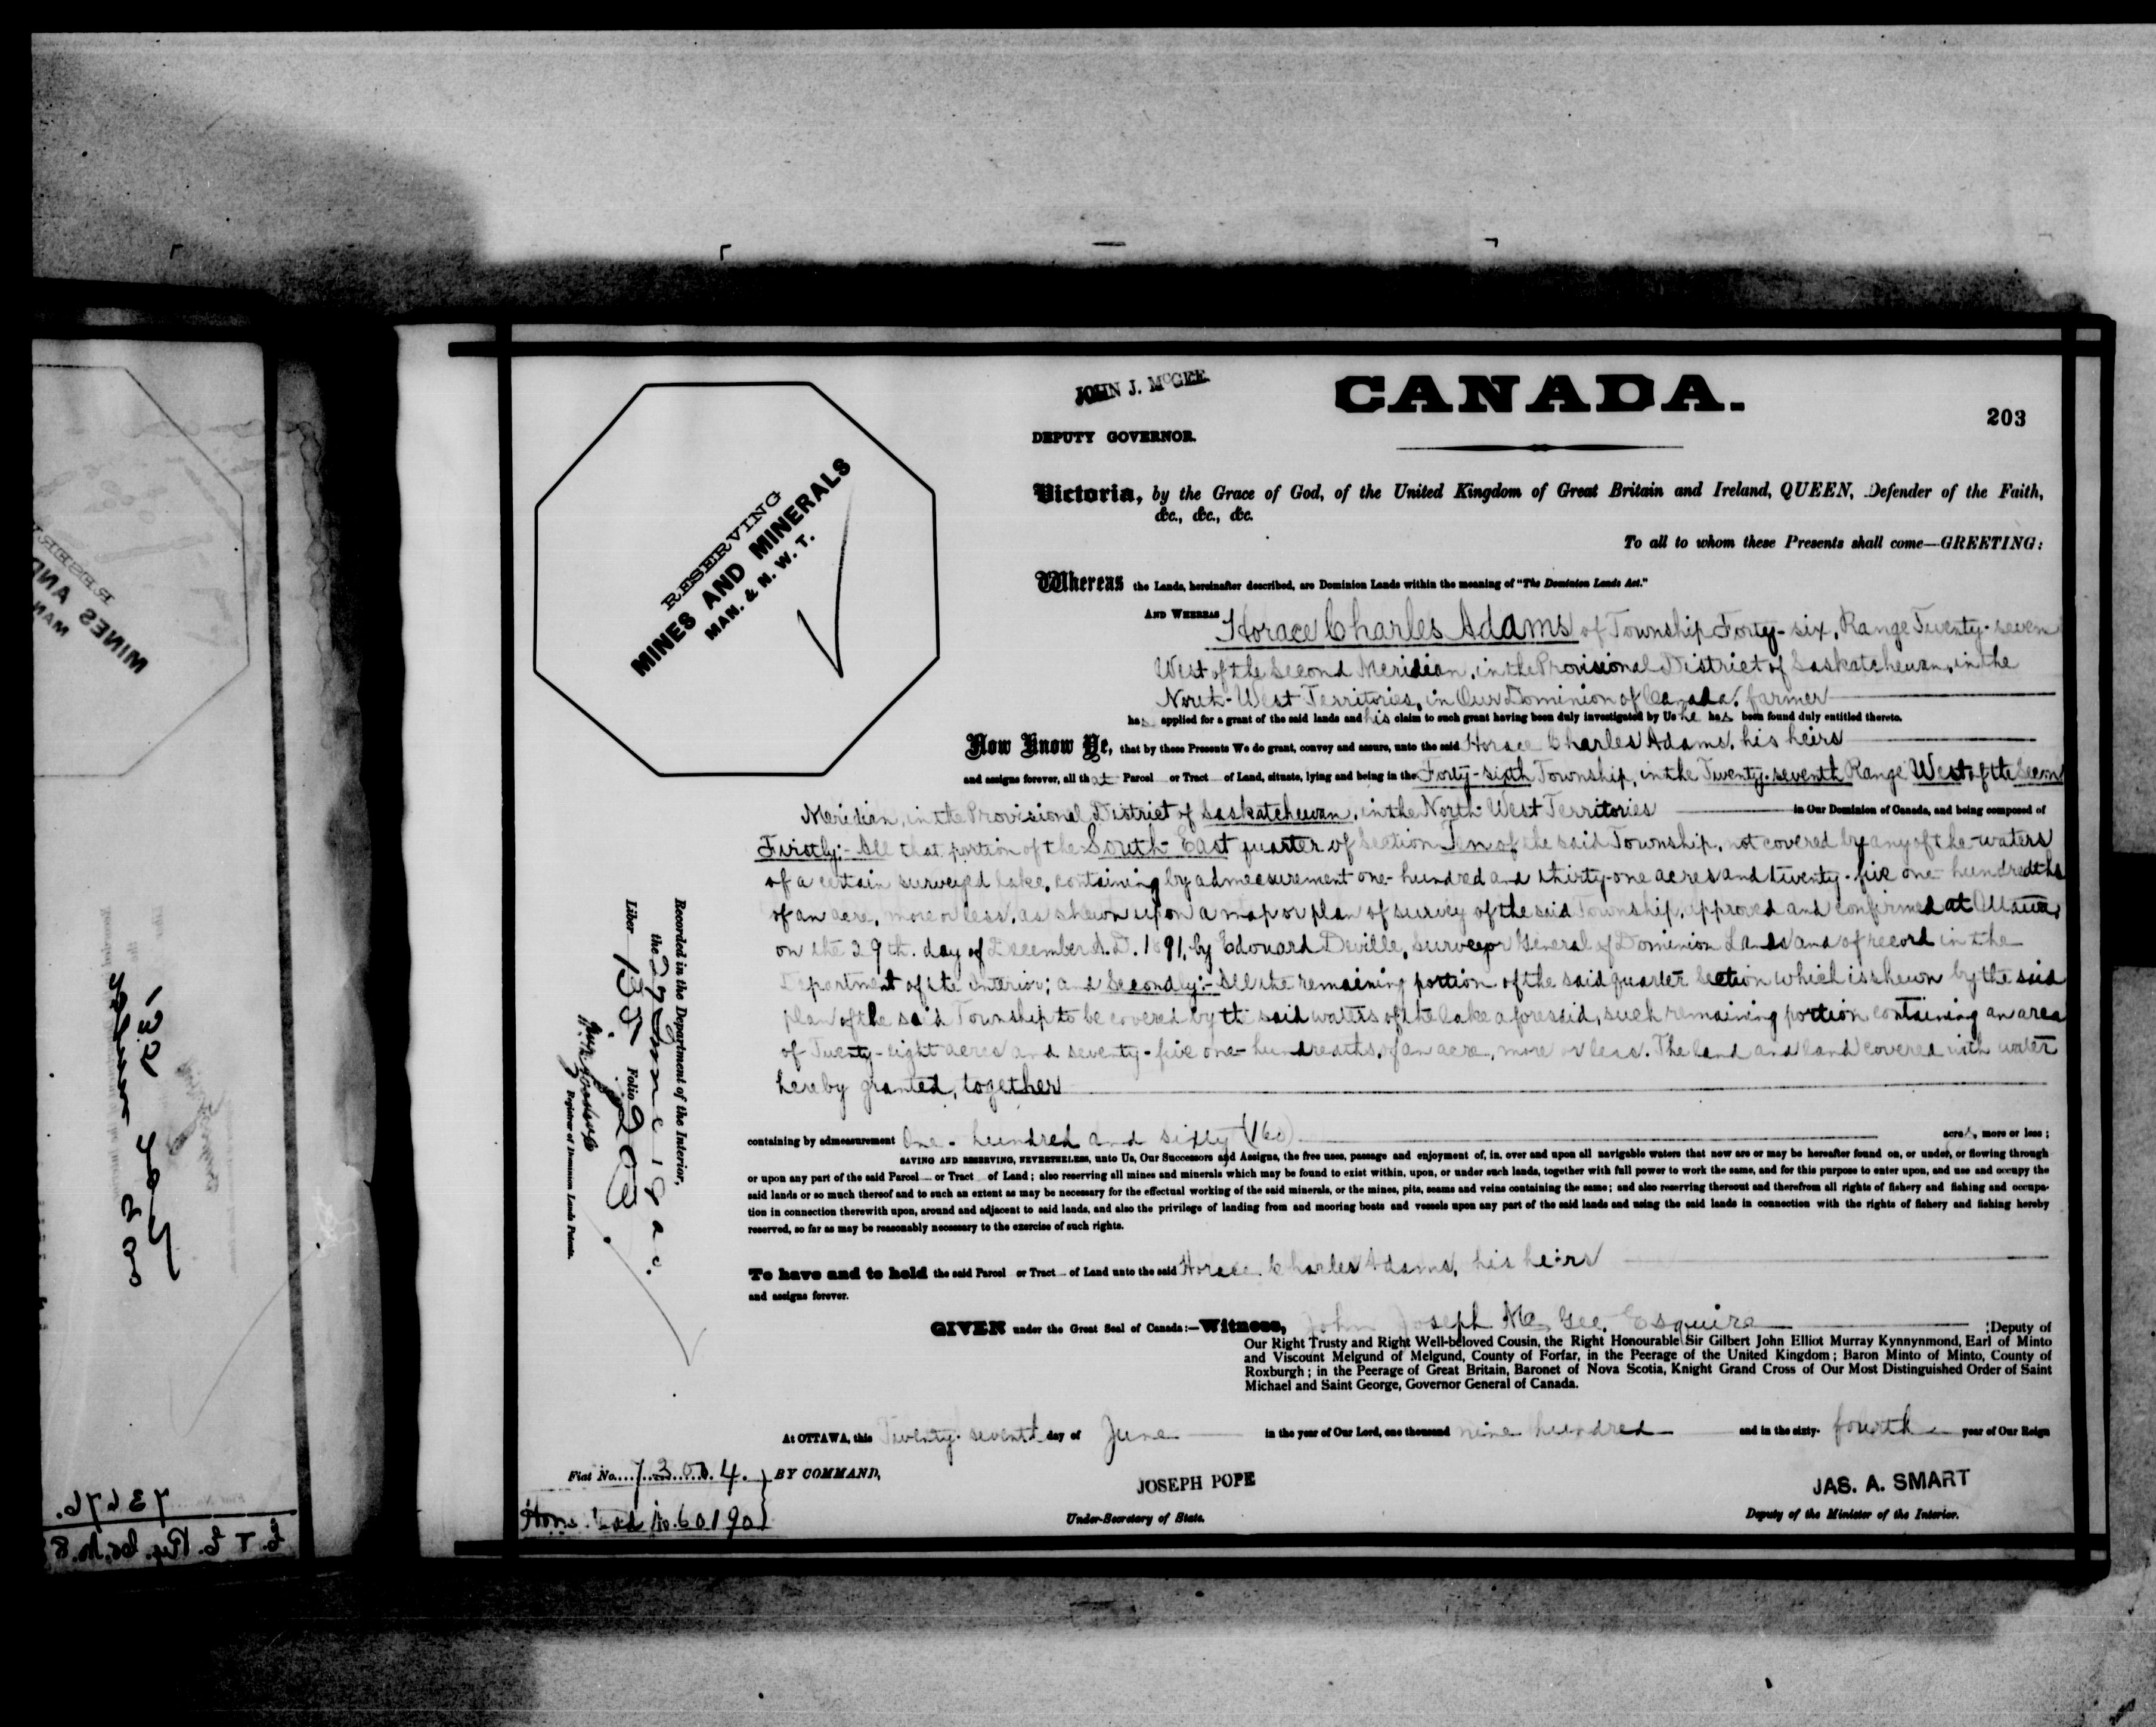 JOHN J. McGEE.
CANADA.
203
DEPUTY GOVERNOR.
Victoria, by the Grace of God, of the United Kingdom of Great Britain and Ireland, QUEEN, Defender of the Faith,
&c., &c., &c.
To all to whom these Presents shall come—GREETING:
Whereas the Lands, hereinafter described, are Dominion Lands within the meaning of "The Dominion Lands Act."
AND WHEREAS Horace Charles Adams of Township Forty-six, Range Twenty-seven
West of the Second Meridian, in the Provisional District of Saskatchewan, in the
North-West Territories, in Our Dominion of Canada, farmer
has applied for a grant of the said lands and his claim to such grant having been duly investigated by Us he has been found duly entitled thereto.
Now Know Ye, that by these Presents We do grant, convey and assure, unto the said Horace Charles Adams, his heirs
and assigns forever, all that Parcel or Tract of Land, situate, lying and being in the Forty-sixth Township, in the Twenty-seventh Range West of the Second
Meridian, in the Provisional District of Saskatchewan, in the North-West Territories in Our Dominion of Canada, and being composed of
Firstly:- All that portion of the South-East quarter of Section Ten of the said Township, not covered by any of the waters
of a certain surveyed lake, containing by admeasurement one-hundred and thirty-one acres and twenty-five one-hundredths
of an acre, more or less, as shewn upon a map or plan of survey of the said Township, approved and confirmed at Ottawa,
on the 29th. day of December A.D. 1891, by Edouard Deville, Surveyor General of Dominion Lands and of record in the
Department of the Interior; and Secondly:- All the remaining portion of the said quarter section which is shewn by the said
plan of the said Township to be covered by the said waters of the lake aforesaid, such remaining portion containing an area
of Twenty-eight acres and seventy-five one-hundredths, of an acre, more or less. The land and land covered with water
hereby granted, together
containing by admeasurement One-hundred and sixty (160) acres, more or less;
SAVING AND RESERVING, NEVERTHELESS, unto Us, Our Successors and Assigns, the free uses, passage and enjoyment of, in, over and upon all navigable waters that now are or may be hereafter found on, or under, or flowing through
or upon any part of the said Parcel or Tract of Land; also reserving all mines and minerals which may be found to exist within, upon, or under such lands, together with full power to work the same, and for this purpose to enter upon, and use and occupy the
said lands or so much thereof and to such an extent as may be necessary for the effectual working of the said minerals, or the mines, pits, seams and veins containing the same; and also reserving thereout and therefrom all rights of fishery and fishing and occupa-
tion in connection therewith upon, around and adjacent to said lands, and also the privilege of landing from and mooring boats and vessels upon any part of the said lands and using the said lands in connection with the rights of fishery and fishing hereby
reserved, so far as may be reasonably necessary to the exercise of such rights.
To have and to hold the said Parcel or Tract of Land unto the said Horace Charles Adams, his heirs
and assigns forever.
GIVEN under the Great Seal of Canada:—Witness, John Joseph McGee, Esquire Deputy of
Our Right Trusty and Right Well-beloved Cousin, the Right Honourable Sir Gilbert John Elliot Murray Kynnynmond, Earl of Minto
and Viscount Melgund of Melgund, County of Forfar, in the Peerage of the United Kingdom; Baron Minto of Minto, County of
Roxburgh; in the Peerage of Great Britain, Baronet of Nova Scotia, Knight Grand Cross of Our Most Distinguished Order of Saint
Michael and Saint George, Governor General of Canada.
At OTTAWA, this Twenty-seventh day of June in the year of Our Lord, one thousand nine hundred and in the sixty-fourth year of Our Reign
Fiat No. 73004. BY COMMAND,
Homestead No. 60190
JOSEPH POPE
Under-Secretary of State.
JAS. A. SMART
Deputy of the Minister of the Interior.
RESERVING
MINES AND MINERALS
MAN. & N. W. T.
Recorded in the Department of the Interior,
the 27 June 1900.
Liber 135 Folio 203
Registrar of Dominion Lands Patents.
RESERV
MINES AND
MAN
73676.